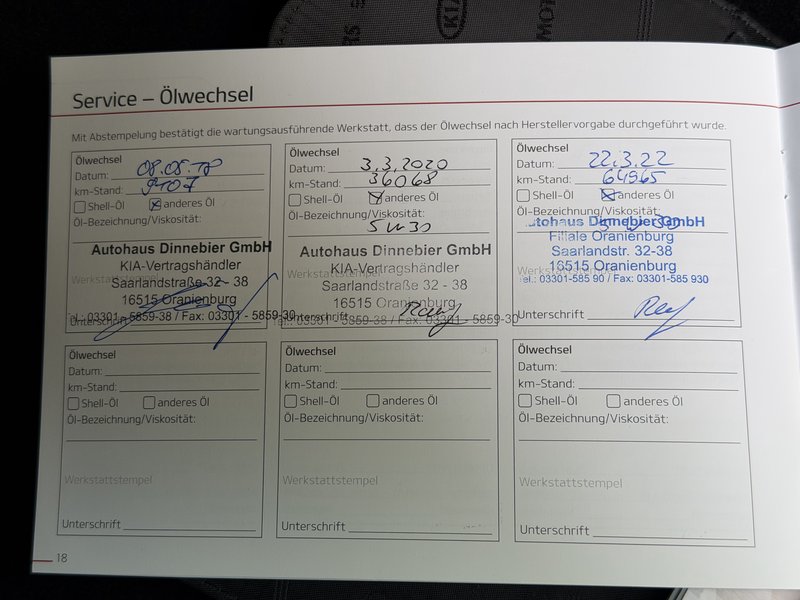 KIA
MOT
Service – Ölwechsel
Mit Abstempelung bestätigt die wartungsausführende Werkstatt, dass der Ölwechsel nach Herstellervorgabe durchgeführt wurde.
Ölwechsel
Datum: 08.05.18
km-Stand: 9107
Shell-Öl anderes Öl
Öl-Bezeichnung/Viskosität:
Autohaus Dinnebier GmbH
KIA-Vertragshändler
Werkstattstempel
Saarlandstraße 32 - 38
16515 Oranienburg
Tel.: 03301 - 5859-38 / Fax: 03301 - 5859-30
Unterschrift
Ölwechsel
Datum: 3.3.2020
km-Stand: 36068
Shell-Öl anderes Öl
Öl-Bezeichnung/Viskosität:
5W30
Autohaus Dinnebier GmbH
KIA-Vertragshändler
Werkstattstempel
Saarlandstraße 32 - 38
16515 Oranienburg
Unterschrift
Tel.: 03301 - 5859-38 / Fax: 03301 - 5859-30
Ölwechsel
Datum: 22.3.22
km-Stand: 64965
Shell-Öl anderes Öl
Öl-Bezeichnung/Viskosität:
Autohaus Dinnebier GmbH
Filiale Oranienburg
Saarlandstr. 32-38
Werkstattstempel
16515 Oranienburg
Tel.: 03301-585 90 / Fax: 03301-585 930
Unterschrift
Ölwechsel
Datum:
km-Stand:
Shell-Öl anderes Öl
Öl-Bezeichnung/Viskosität:
Werkstattstempel
Unterschrift
Ölwechsel
Datum:
km-Stand:
Shell-Öl anderes Öl
Öl-Bezeichnung/Viskosität:
Werkstattstempel
Unterschrift
Ölwechsel
Datum:
km-Stand:
Shell-Öl anderes Öl
Öl-Bezeichnung/Viskosität:
Werkstattstempel
Unterschrift
18